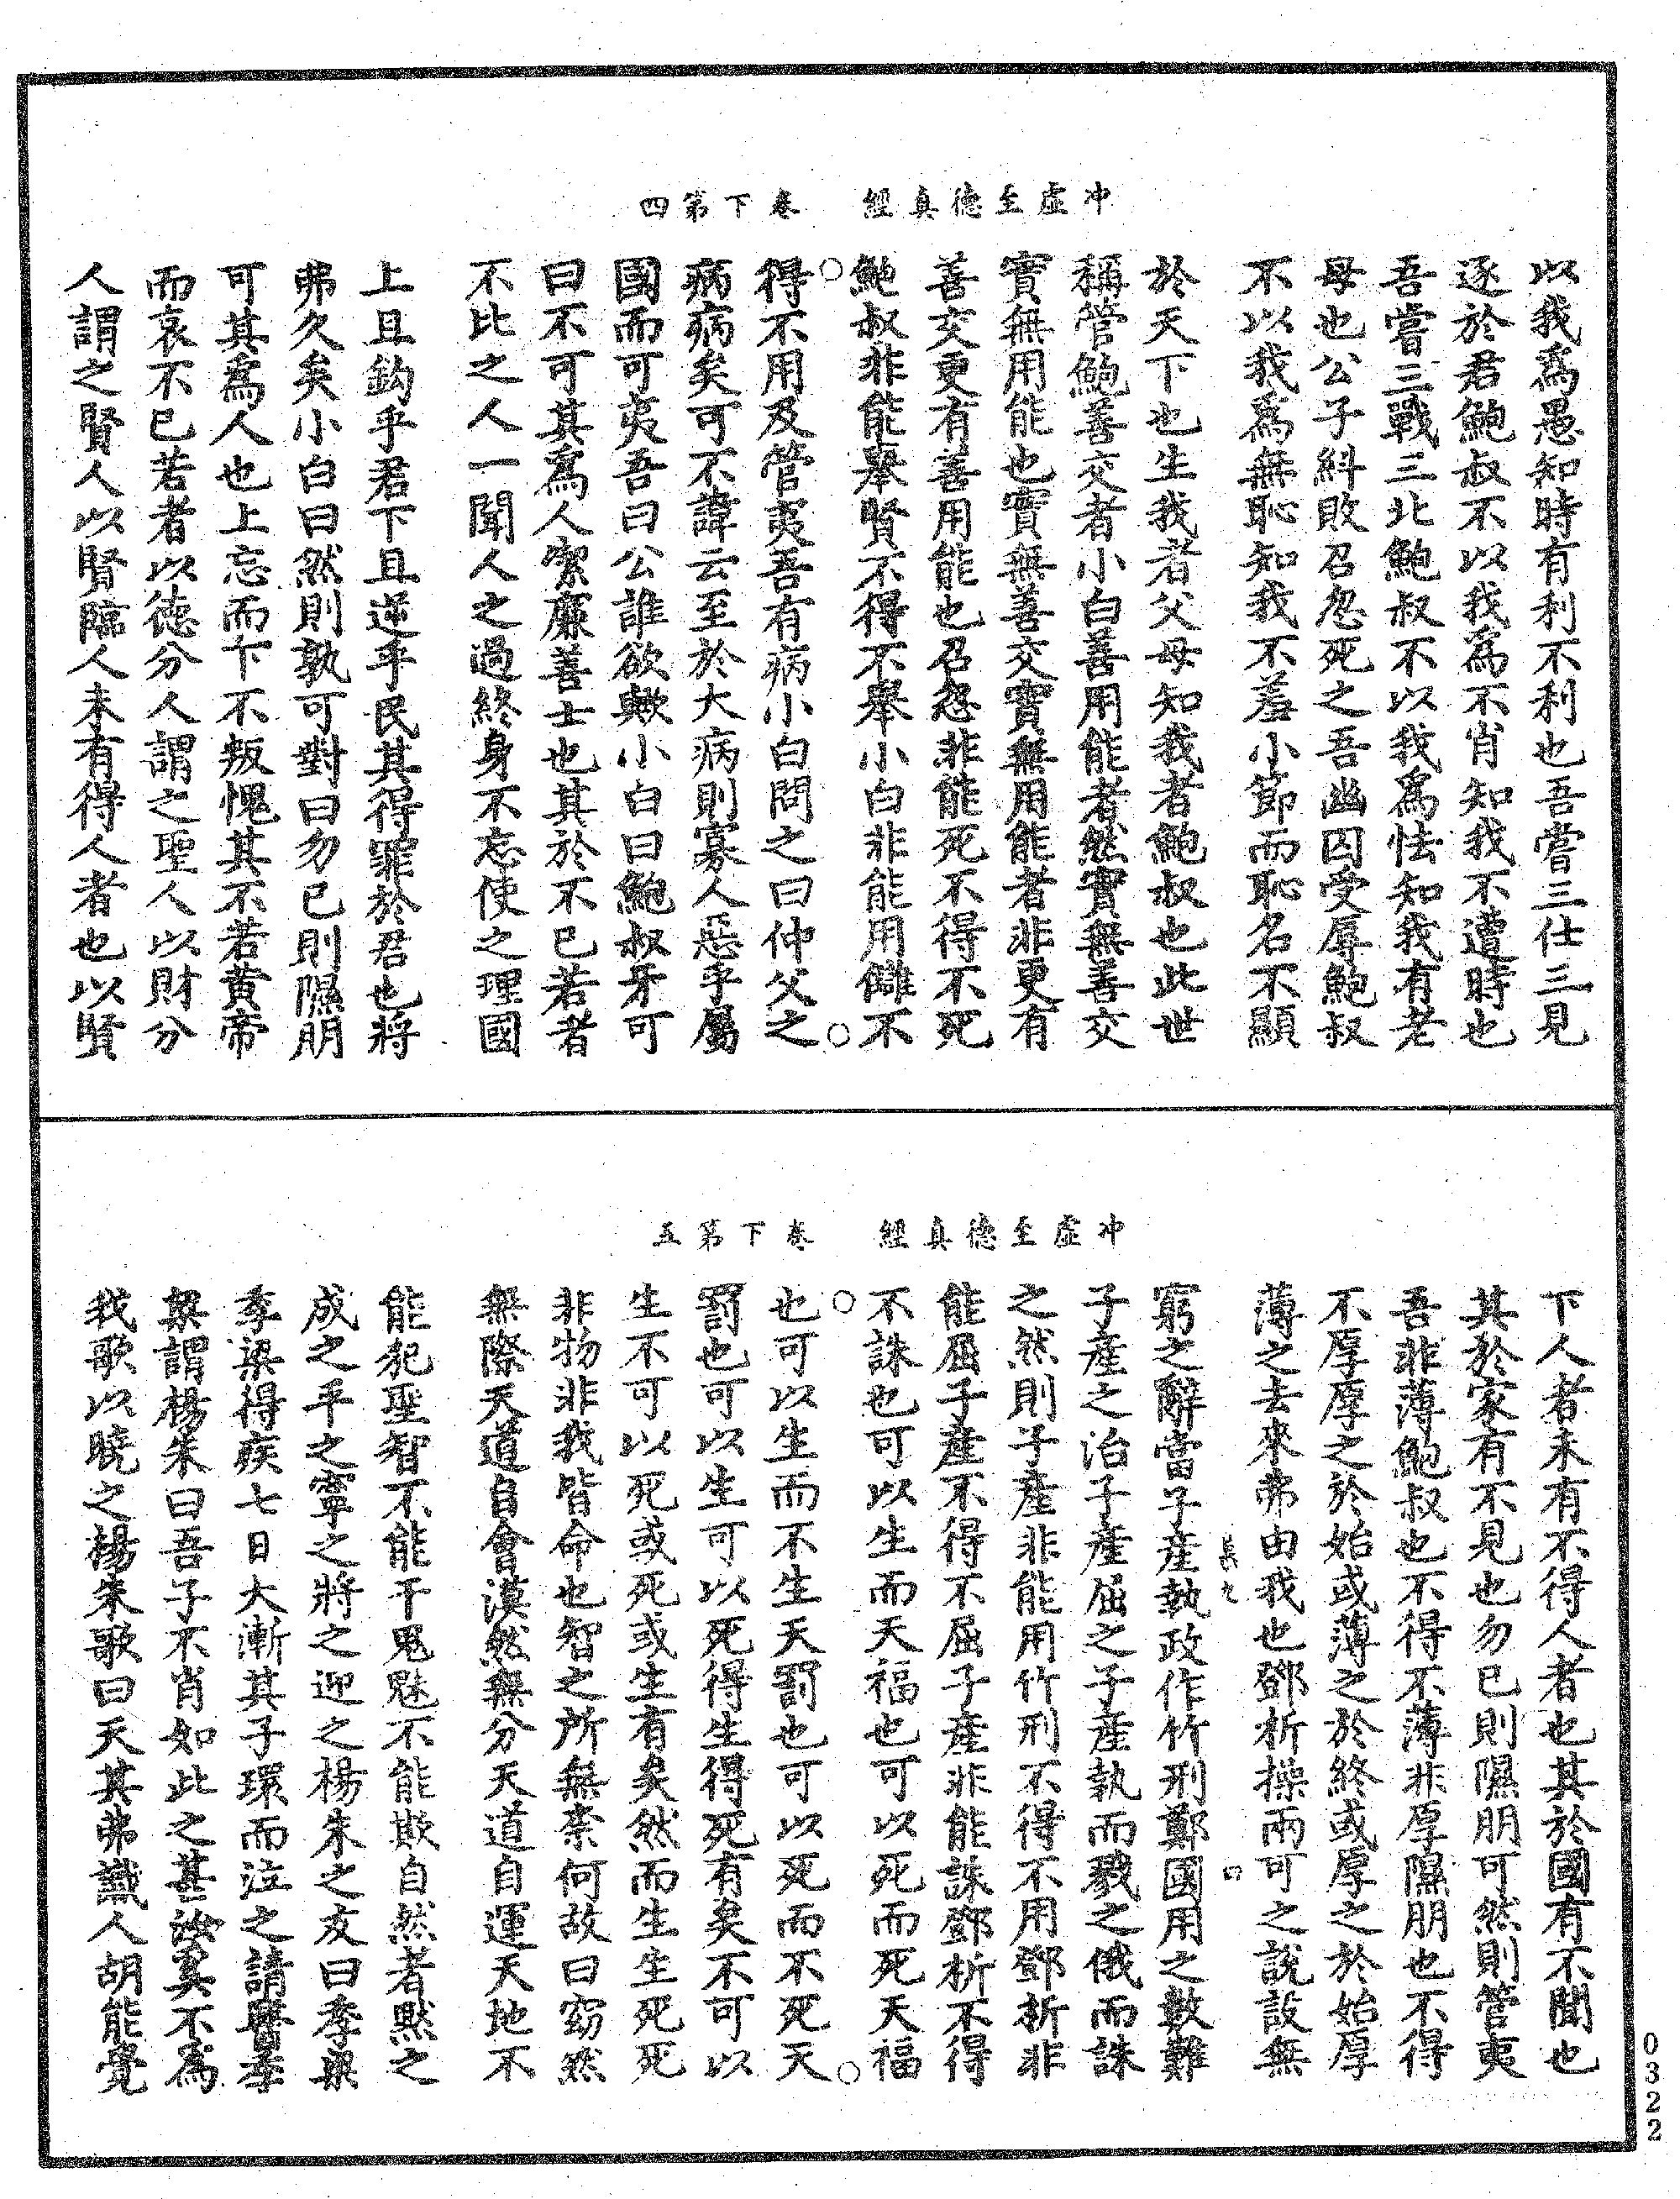 冲虛至德真經　卷下第四
以我爲愚知時有利不利也吾嘗三仕三見
逐於君鮑叔不以我爲不肖知我不遭時也
吾嘗三戰三北鮑叔不以我爲怯知我有老
母也公子糾敗召忽死之吾幽囚受辱鮑叔
不以我爲無恥知我不羞小節而恥名不顯
於天下也生我者父母知我者鮑叔也此世
稱管鮑善交者小白善用能者然實無善交
實無用能也實無善交實無用能者非更有
善交更有善用能也召忽非能死不得不死
鮑叔非能舉賢不得不舉小白非能用讎不
得不用及管夷吾有病小白問之曰仲父之
病病矣可不諱云至於大病則寡人惡乎屬
國而可夷吾曰公誰欲歟小白曰鮑叔牙可
曰不可其爲人潔廉善士也其於不已若者
不比之人一聞人之過終身不忘使之理國
上且鉤乎君下且逆乎民其得罪於君也將
弗久矣小白曰然則孰可對曰勿已則隰朋
可其爲人也上忘而下不叛愧其不若黄帝
而哀不已若者以德分人謂之聖人以財分
人謂之賢人以賢臨人未有得人者也以賢
冲虛至德真經　卷下第五
下人者未有不得人者也其於國有不聞也
其於家有不見也勿已則隰朋可然則管夷
吾非薄鮑叔也不得不薄非厚隰朋也不得
不厚厚之於始或薄之於終或厚之於始厚
薄之去來弗由我也鄧析操兩可之說設無
窮之辭當子產執政作竹刑鄭國用之數難
子產之治子產屈之子產執而戮之俄而誅
之然則子產非能用竹刑不得不用鄧析非
能屈子產不得不屈子產非能誅鄧析不得
不誅也可以生而天福也可以死而死天福
也可以生而不生天罰也可以死而不死天
罰也可以生可以死得生得死有矣不可以
生不可以死或死或生有矣然而生生死死
非物非我皆命也智之所無柰何故曰窈然
無際天道自會漠然無分天道自運天地不
能犯聖智不能干鬼魅不能欺自然者默之
成之平之寧之將之迎之楊朱之友曰季梁
季梁得疾七日大漸其子環而泣之請醫季
梁謂楊朱曰吾子不肖如此之甚汝奚不爲
我歌以曉之楊朱歌曰天其弗識人胡能覺
0322